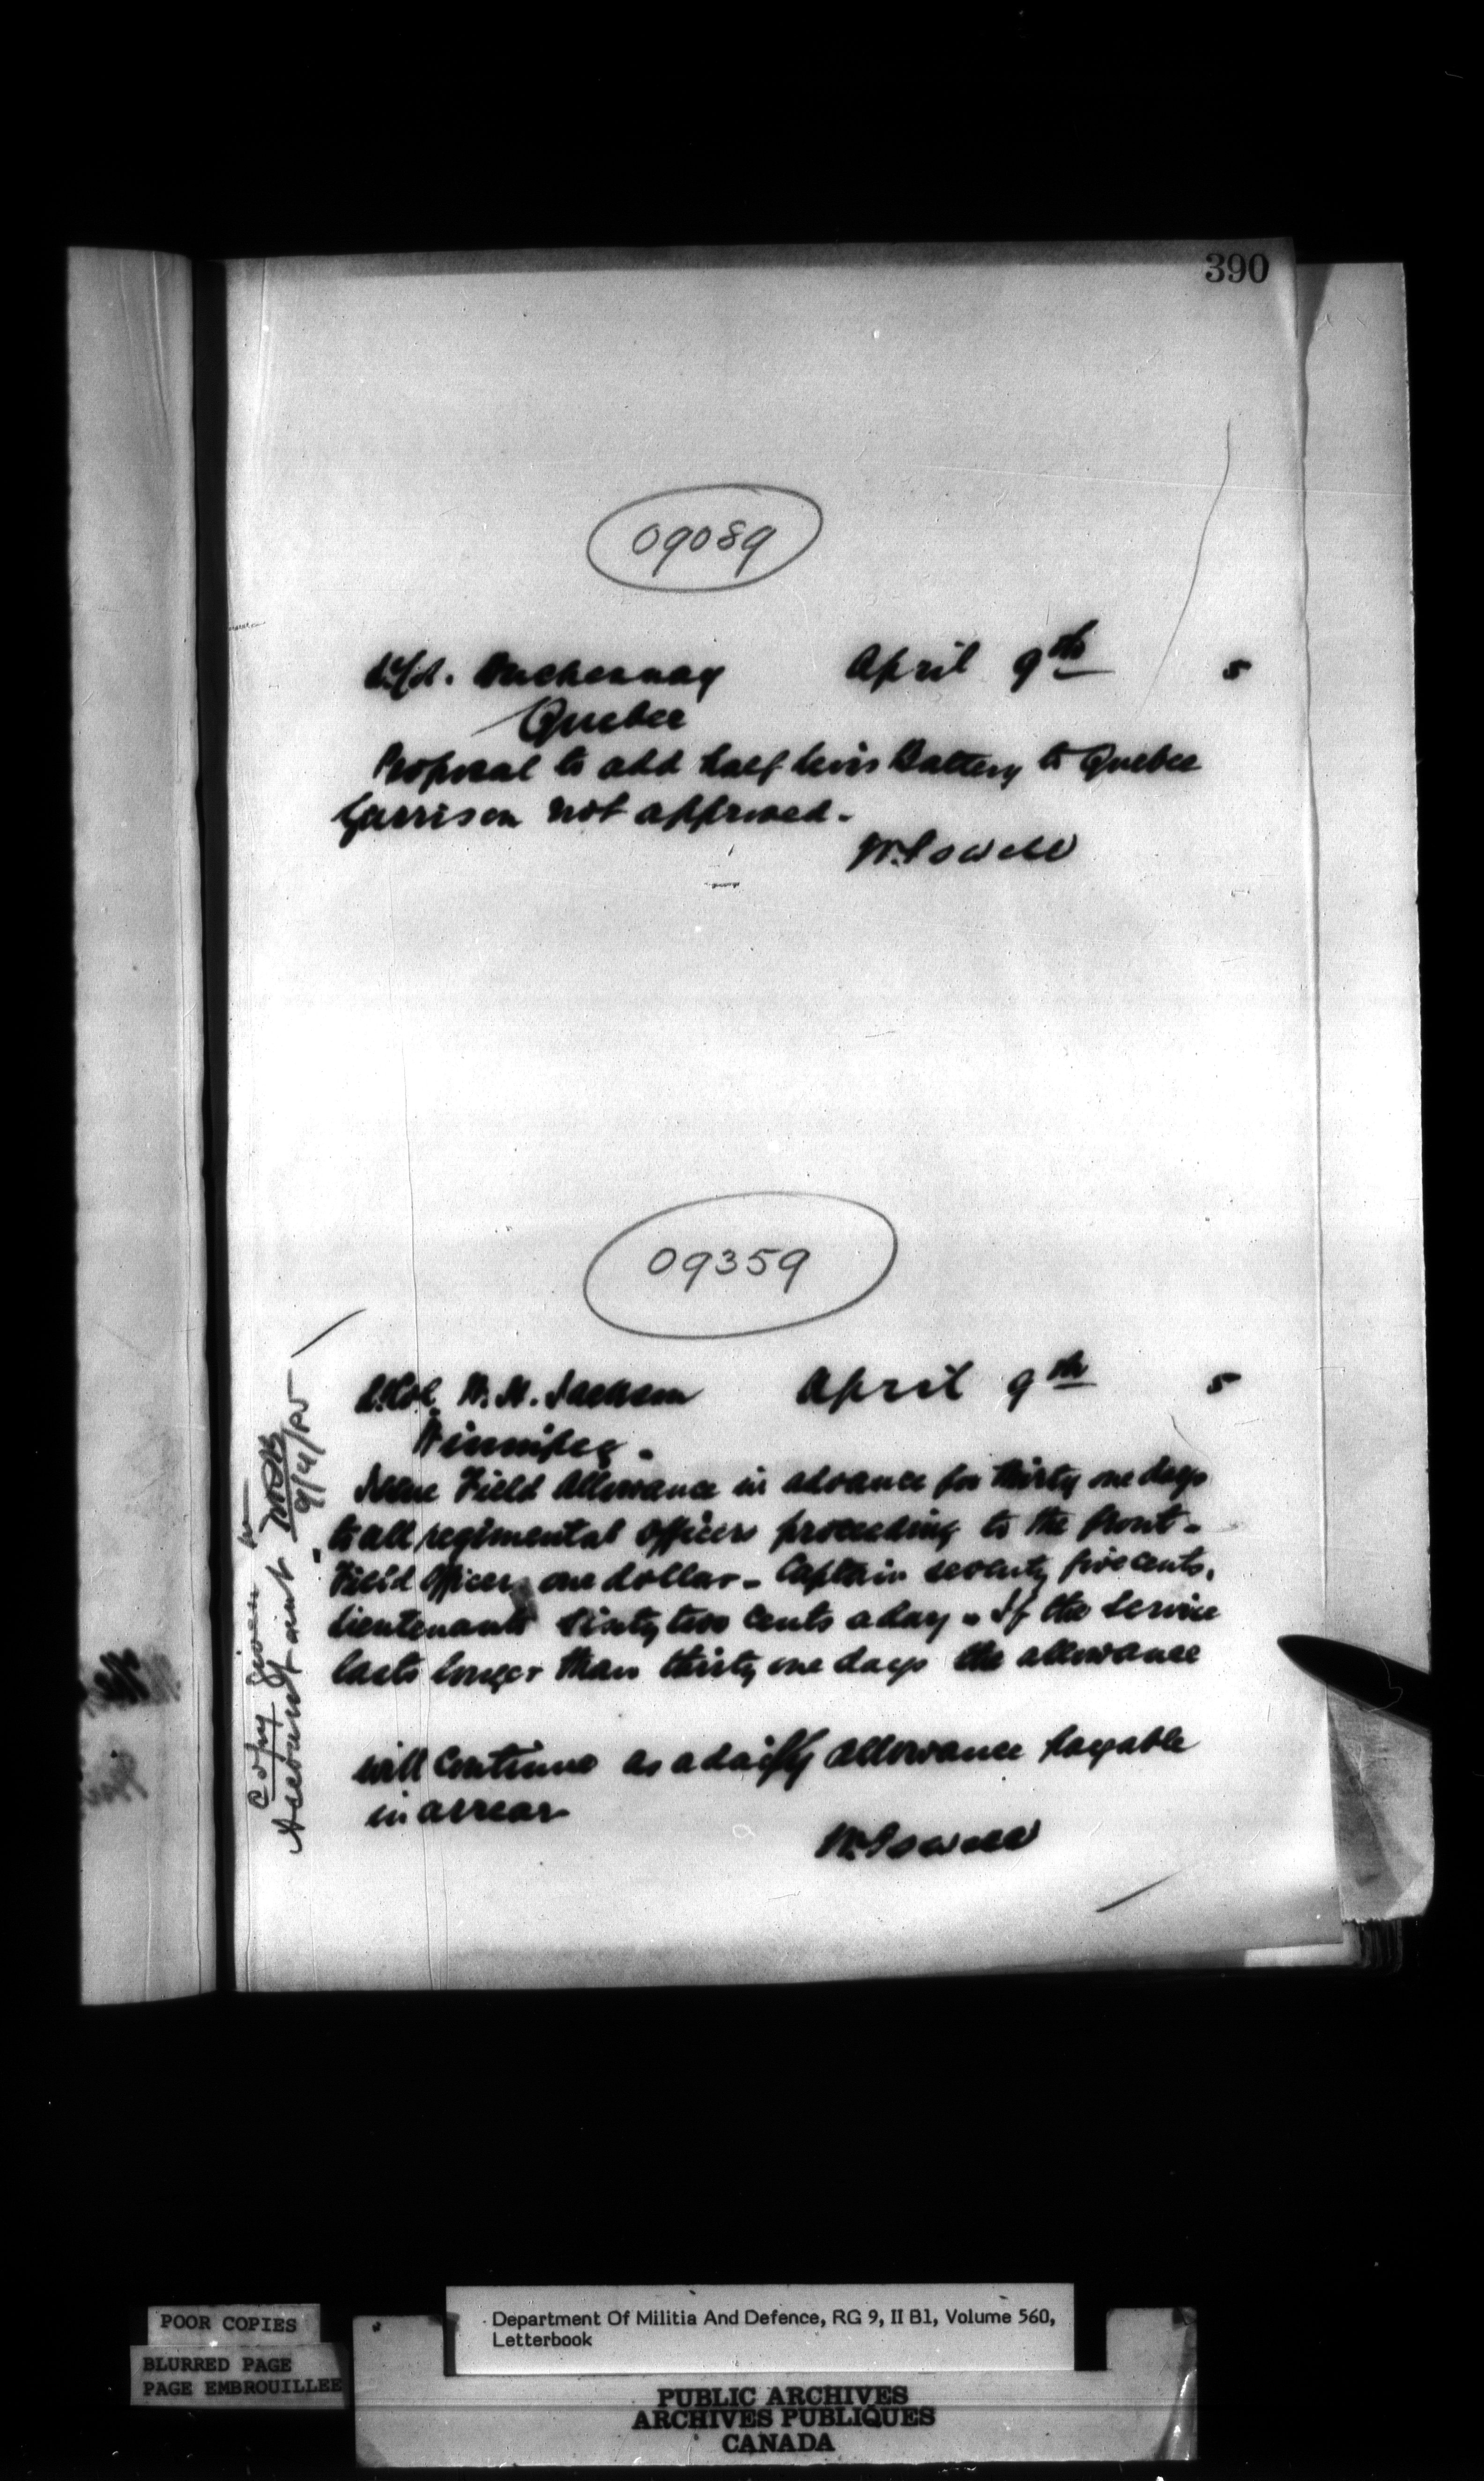 390
09089
Duchesnay April 9th 5
Quebec
Proposal to add half Levis Battery to Quebec
Garrison not approved.
W. Powell
09359
Lt. Col. W. H. Jackson April 9th 5
Winnipeg.
Issue Field Allowance in advance for thirty one days
to all regimental officers proceeding to the front.
Field Officers one dollar. Captain seventy five cents,
Lieutenants Sixty two cents a day. If the Service
lasts longer than thirty one days the allowance
will continue as a daily allowance payable
in arrear
W. Powell
Copy given to
Accountant
9/4/85
POOR COPIES
BLURRED PAGE
PAGE EMBROUILLEE
Department Of Militia And Defence, RG 9, II B1, Volume 560,
Letterbook
PUBLIC ARCHIVES
ARCHIVES PUBLIQUES
CANADA